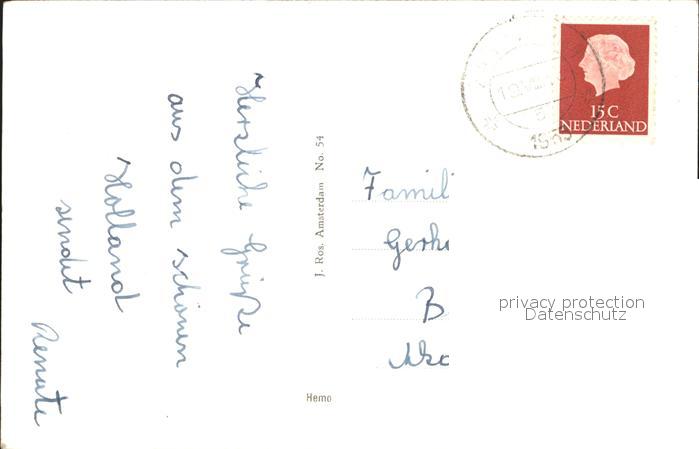 Herzliche Grüße
aus dem schönen
Holland
sendet
Renate
J. Ros. Amsterdam No. 54
Hemo
Famili
Gerh
B
15 C
NEDERLAND
privacy protection
Datenschutz